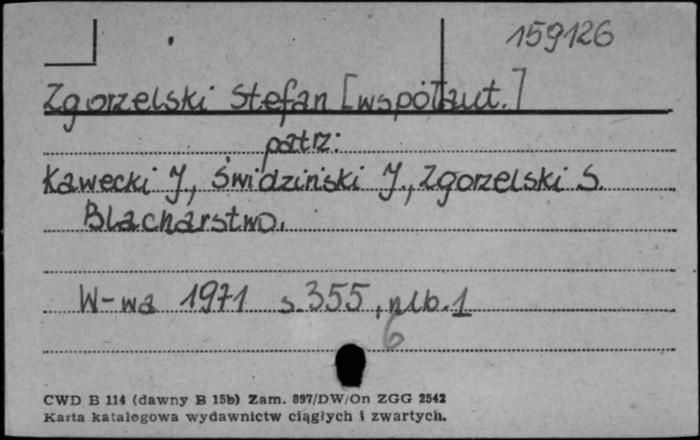 159126
Zgorzelski Stefan [współaut.]
patrz:
Kawecki J., Świdziński J., Zgorzelski S.
Blacharstwo.
W-wa 1971 s. 355, nlb. 1
6
CWD B 114 (dawny B 15b) Zam. 897/DW/On ZGG 2542
Karta katalogowa wydawnictw ciągłych i zwartych.